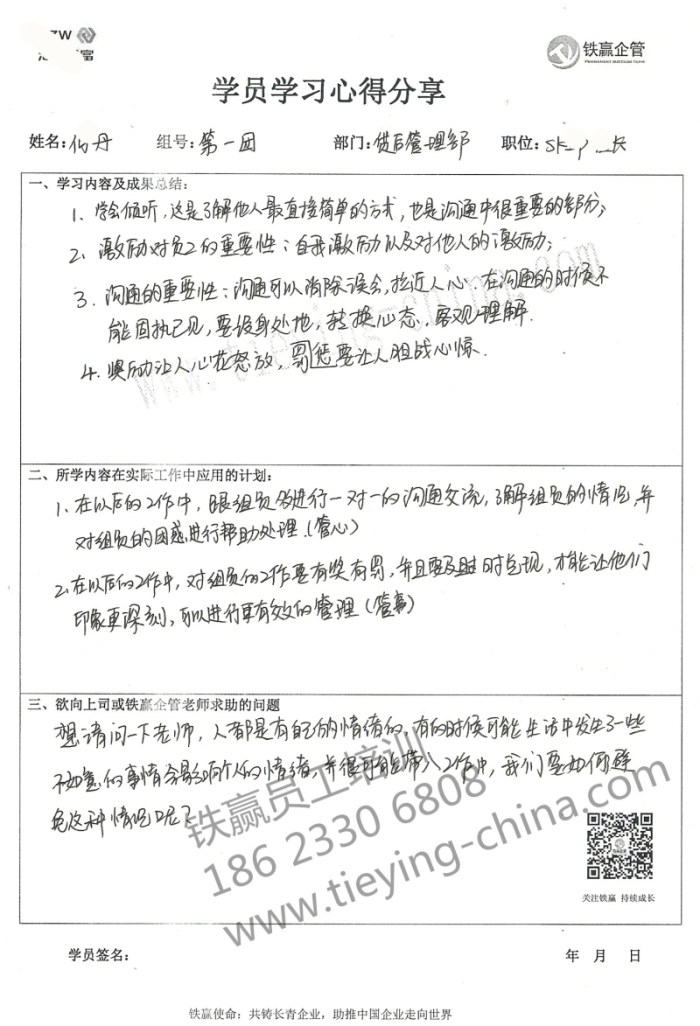 ZW
富
铁赢企管
PERMANENT SUCCESS TEAM
学员学习心得分享
姓名:伍丹 组号:第一团 部门:贷后管理部 职位: 长
一、学习内容及成果总结:
1、学会倾听,这是了解他人最直接简单的方式,也是沟通中很重要的部分;
2、激励对员工的重要性:自我激励以及对他人的激励;
3、沟通的重要性:沟通可以消除误会,拉近人心.在沟通的时候不
能固执己见,要设身处地,转换心态,客观理解.
4、奖励让人心花怒放,罚惩要让人胆战心惊.
二、所学内容在实际工作中应用的计划:
1、在以后的工作中,跟组员多进行一对一的沟通交流,了解组员的情况,并
对组员的困惑进行帮助处理.(管心)
2、在以后的工作中,对组员的工作要有奖有罚,并且要及时兑现,才能让他们
印象更深刻,可以进行更有效的管理(管事)
三、欲向上司或铁赢企管老师求助的问题
想请问一下老师,人都是有自己的情绪的,有的时候可能生活中发生了一些
不如意的事情会影响个人的情绪,并很可能带入工作中,我们要如何避
免这种情况呢?
铁赢员工培训
186 2330 6808
www.tieying-china.com
关注铁赢 持续成长
学员签名: 年 月 日
铁赢使命:共铸长青企业,助推中国企业走向世界